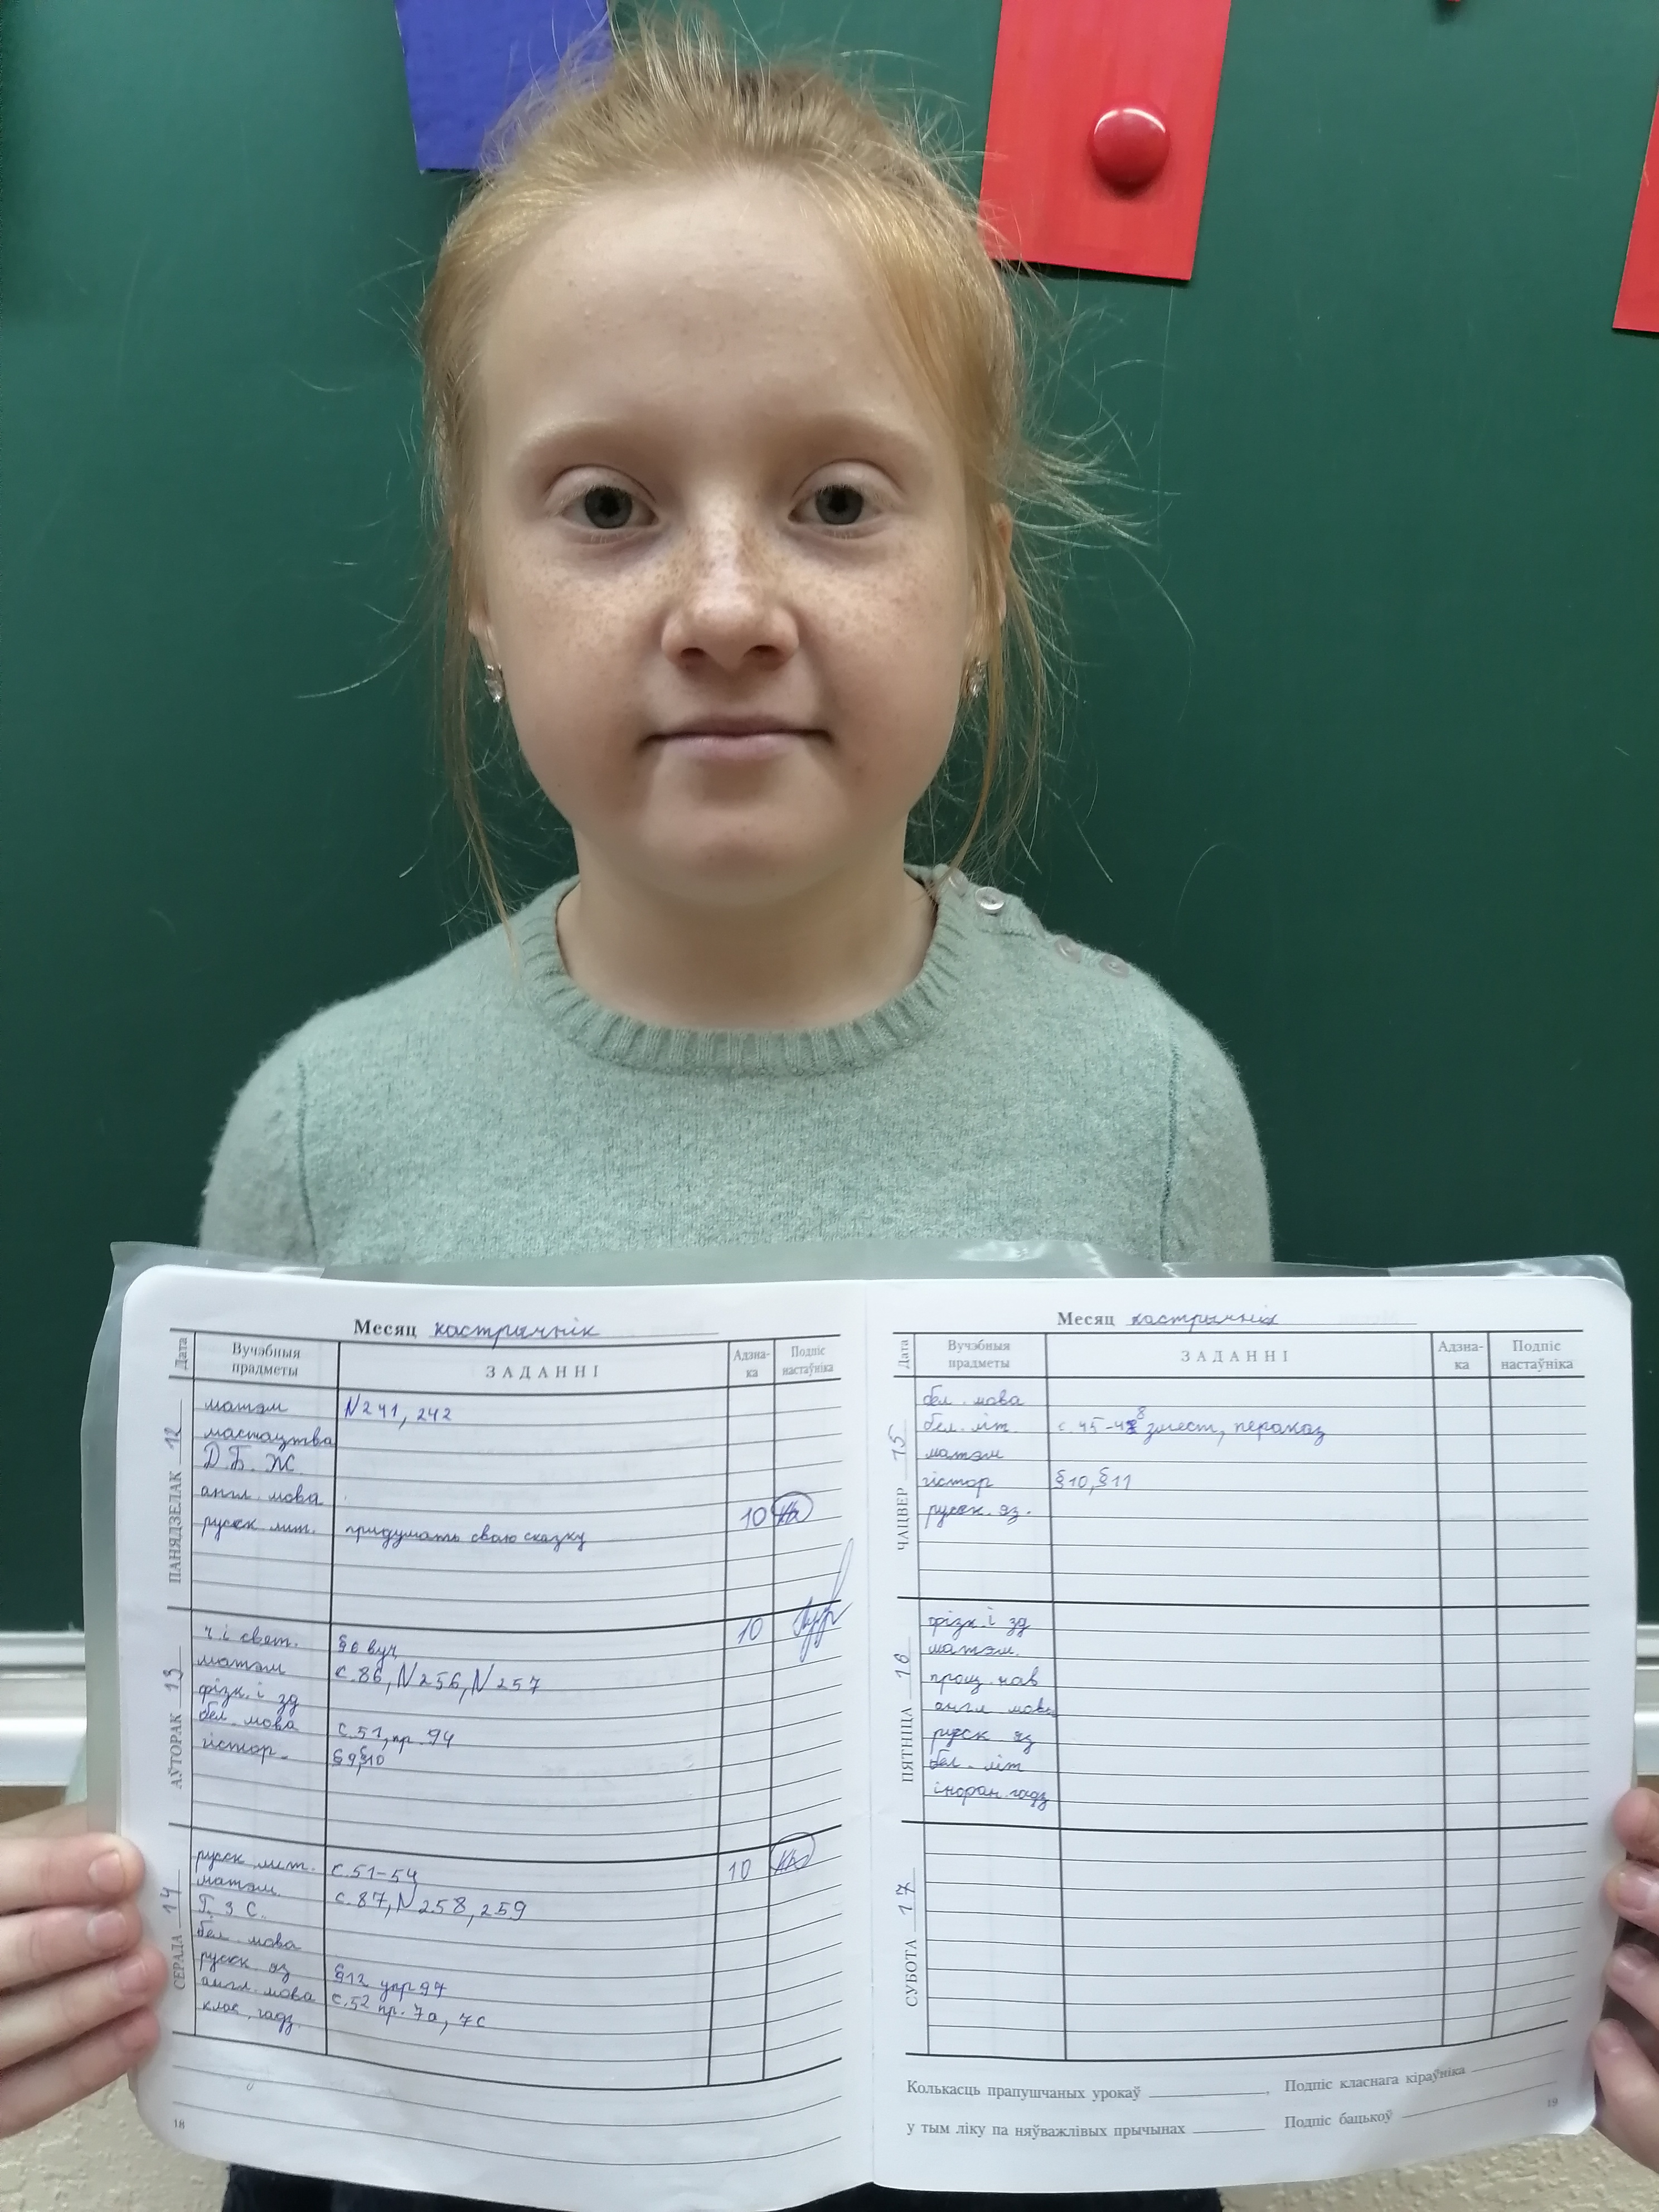 Месяц кастрычнік
Дата Вучэбныя прадметы ЗАДАННІ Адзна-ка Подпіс настаўніка
ПАНЯДЗЕЛАК 12
матэм N241, 242
мастацтва
Д.Б.Ж.
англ. мова
русск лит. придумать сваю сказку 10
АЎТОРАК 13
ч. і свет. §6 вуч 10
матэм с.86, N256, N257
фізк. і зд
бел. мова с.51, пр. 94
гістор. §9,§10
СЕРАДА 14
русск лит. с.51-54 10
матэм. с.87, N258, 259
Г. З С.
бел. мова
русск яз §12 упр 97
англ. мова с.52 пр. 7a, 7c
клас. гадз.
18
Месяц кастрычнік
Дата Вучэбныя прадметы ЗАДАННІ Адзна-ка Подпіс настаўніка
ЧАЦВЕР 15
бел. мова
бел. літ. с.45-48 змест, пераказ
матэм
гістор §10, §11
русск. яз.
ПЯТНІЦА 16
фізк. і зд
матэм.
прац. нав
англ мова
русск яз
бел. літ
інфран. гадз
СУБОТА 17
Колькасць прапушчаных урокаў , Подпіс класнага кіраўніка
у тым ліку па няўважлівых прычынах Подпіс бацькоў
19